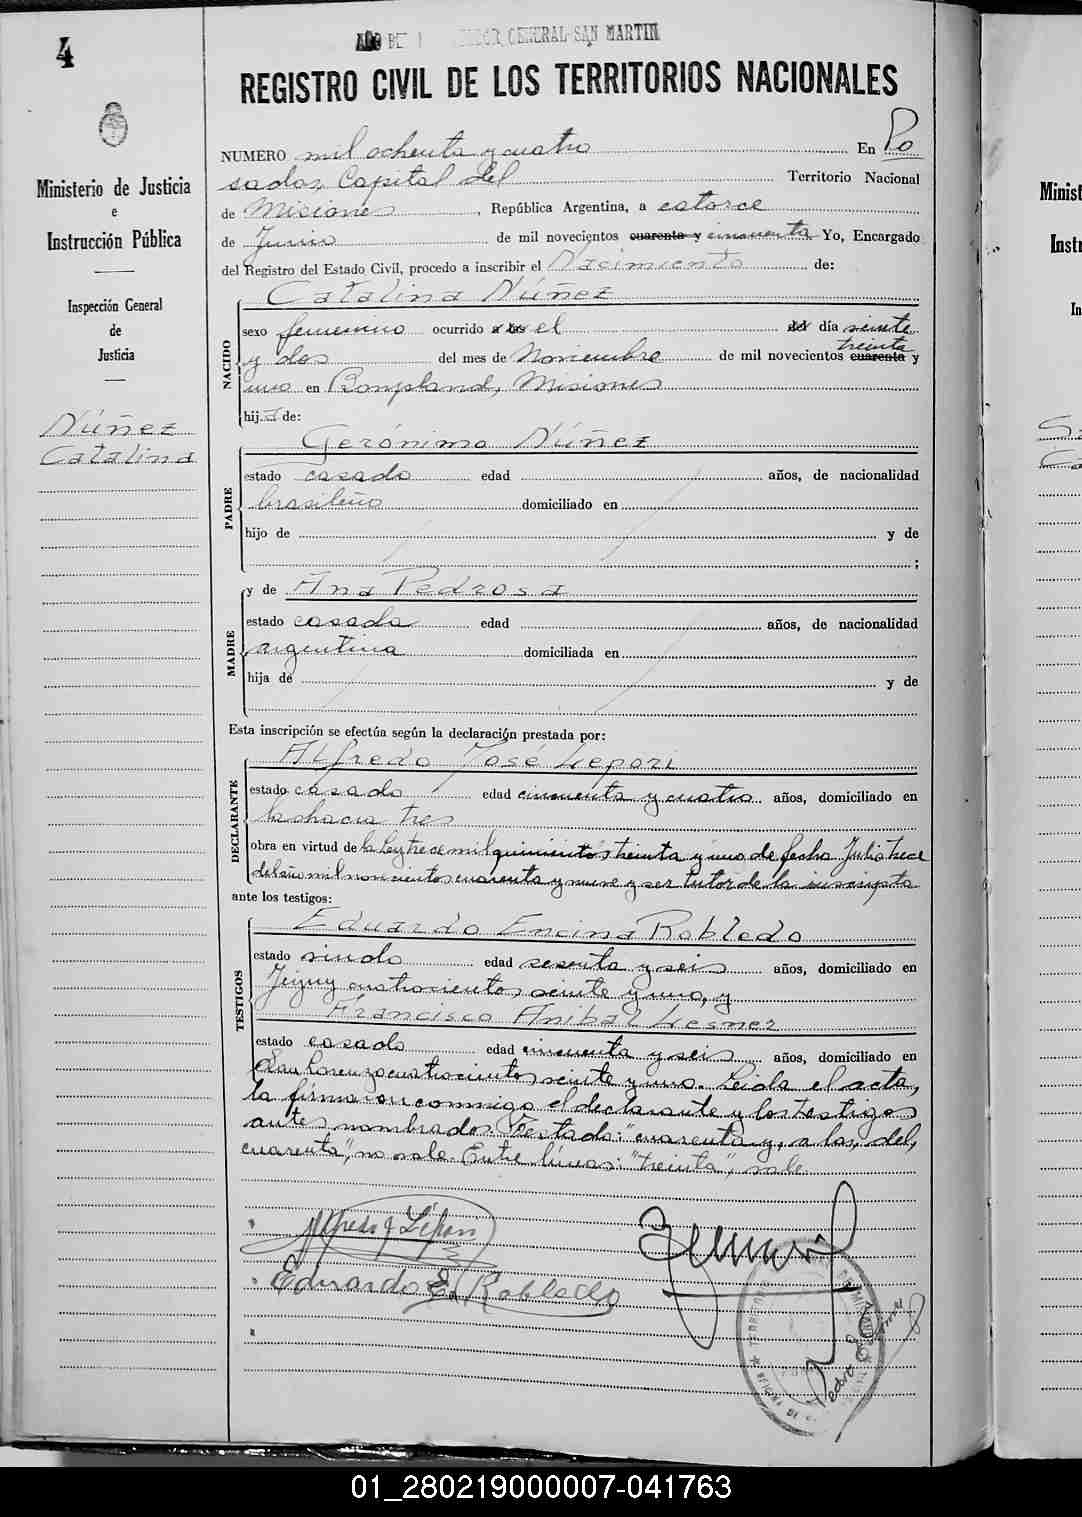 4
AÑO DEL GENERAL SAN MARTIN
REGISTRO CIVIL DE LOS TERRITORIOS NACIONALES
Ministerio de Justicia
e
Instrucción Pública
Inspección General
de
Justicia
Núñez
Catalina
NUMERO mil ochenta y cuatro En Po
sadas, Capital del Territorio Nacional
de Misiones, República Argentina, a catorce
de Junio de mil novecientos cuarenta y cincuenta Yo, Encargado
del Registro del Estado Civil, procedo a inscribir el Nacimiento de:
NACIDO
Catalina Núñez
sexo femenino ocurrido a las el del día veinte
y dos del mes de Noviembre de mil novecientos cuarenta y
treinta
uno en Bonpland, Misiones
hija de:
PADRE
Gerónimo Núñez
estado casado edad años, de nacionalidad
brasileño domiciliado en
hijo de y de
;
MADRE
y de Ana Pedrosa
estado casada edad años, de nacionalidad
argentina domiciliada en
hija de y de
Esta inscripción se efectúa según la declaración prestada por:
DECLARANTE
Alfredo José Lepori
estado casado edad cincuenta y cuatro años, domiciliado en
la chacra tres
obra en virtud de la Ley trece mil quinientos treinta y uno de fecha Julio trece
del año mil novecientos cuarenta y nueve y ser tutor de la inscripta
ante los testigos:
TESTIGOS
Eduardo Encina Robledo
estado viudo edad sesenta y seis años, domiciliado en
Jujuy cuatrocientos veinte y uno, y
Francisco Anibal Lesner
estado casado edad cincuenta y seis años, domiciliado en
San Lorenzo cuatrocientos veinte y uno. Leida el acta,
la firmaron conmigo el declarante y los testigos
antes nombrados. Testado: "cuarenta y, a las, del,
cuarenta", no vale. Entre líneas: "treinta", vale
Alfredo J Lépori
Eduardo E. Robledo
Pedro
01_280219000007-041763
Minist
Inst
In